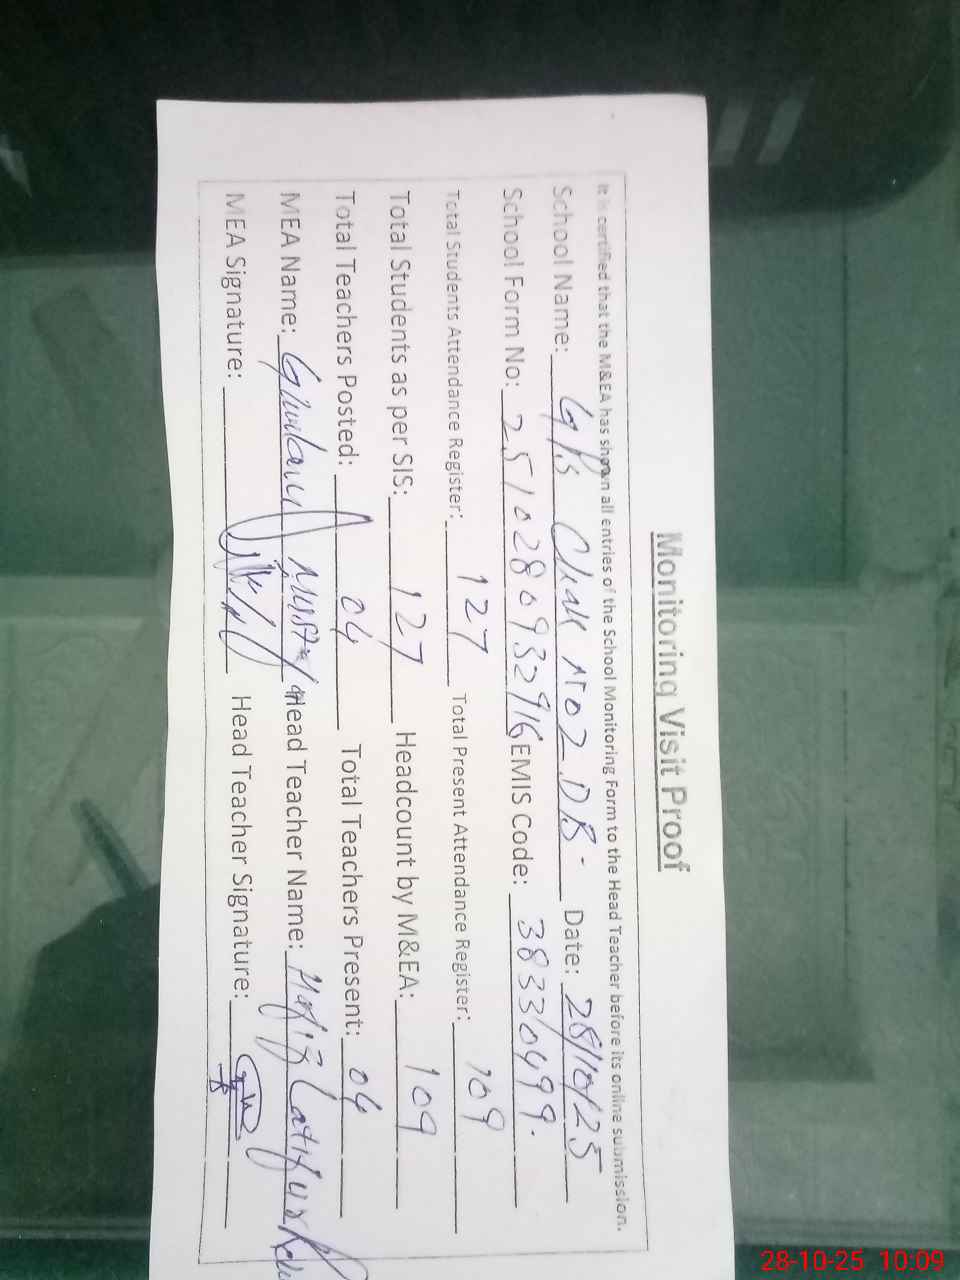 Monitoring Visit Proof
It is certified that the M&EA has shown all entries of the School Monitoring Form to the Head Teacher before its online submission.
School Name: GPS Chak No 2 DB. Date: 28/10/25
School Form No: 251028093291 EMIS Code: 38330499.
Total Students Attendance Register: 127 Total Present Attendance Register: 109
Total Students as per SIS: 127 Headcount by M&EA: 109
Total Teachers Posted: 04 Total Teachers Present: 04
MEA Name: Ghulam Head Teacher Name: Hafiz Latif ur
MEA Signature: Head Teacher Signature:
28-10-25 10:09